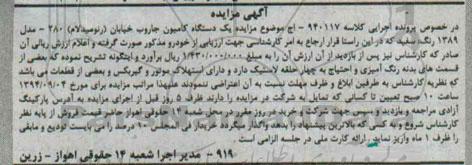 آگهی مزایده
در خصوص پرونده اجرایی کلاسه ۹۴۰۱۱۷ - اج موضوع مزایده یک دستگاه کامیون جاروب خیابان (رنومیدلام) ۲۸۰ - مدل
۱۳۸۹ رنگ سفید که در این راستا قرار ارجاع به امر کارشناسی جهت ارزیابی از خودرو مذکور صورت گرفته و اعلام ارزش ریالی آن
صادر که کارشناس نیز پس از بازدید از آن ارزش آن را به مبلغ ۱/۴۳۰/۰۰۰/۰۰۰ ریال برآورد و اینگونه تشریح نموده که بعضی از
قسمت های بدنه رنگ آمیزی و احتیاج به چهار حلقه لاستیک دارد و دارای استهلاک موتور و گیربکس و بعضی از قطعات می باشد
که نظریه کارشناس به طرفین ابلاغ و ظرف مهلت نسبت به آن اعتراضی ننمودند علیهذا مراتب مزایده برای مورخ ۱۳۹۴/۰۹/۰۴
ساعت ۱۰ صبح تعیین تا کسانی که تمایل به شرکت در مزایده را دارند ظرف ۵ روز قبل از اجرای مزایده به آدرس پارکینگ
آزادی مراجعه و بازدید و سپس جهت شرکت و خرید در روز مقرر در محل شعبه ۱۴ حقوقی اهواز حاضر قیمت فروش از پایه نظر
کارشناس شروع و به کسی که بالاترین پیشنهاد را بدهد واگذار میگردد خریدار فی المجلس ۱۰ درصد را می بایست تودیع و مابقی
را ظرف ۱ ماه واریز نماید، ارائه کارت ملی در جلسه الزامی است.
۹۱۹- مدیر اجرا شعبه ۱۴ حقوقی اهواز - زرین